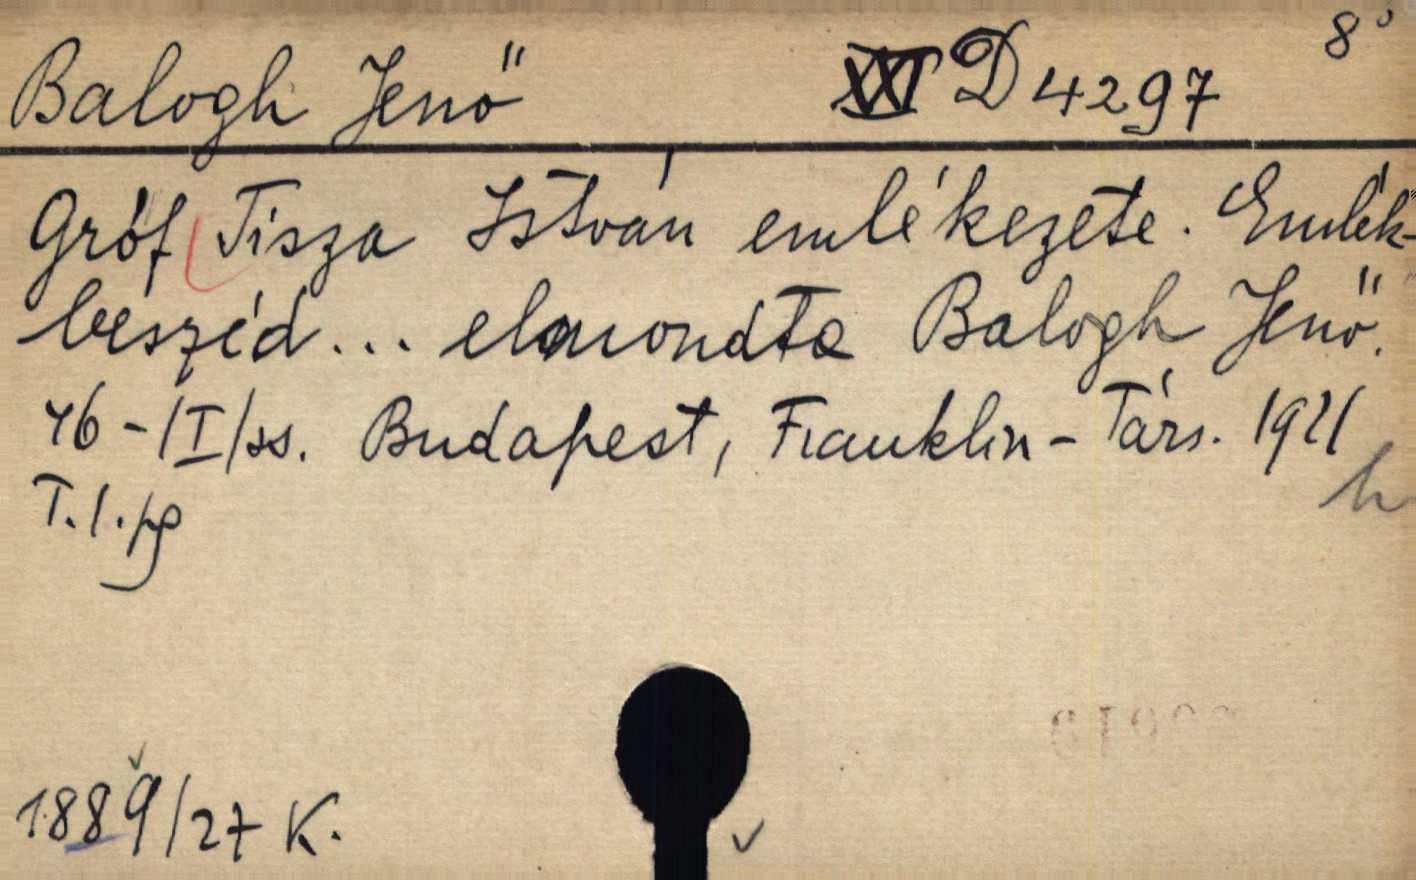 Balogh Jenő XXI D 4297 8°
Gróf Tisza István emlékezete. Emlék-
beszéd... elmondta Balogh Jenő.
46-/I/ss. Budapest, Franklin-Társ. 1921
T.l.pg
h
1889/27 K.